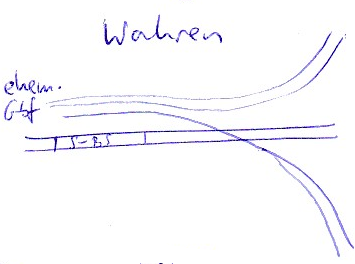 Wahren
ehem.
Gbf
S-BS